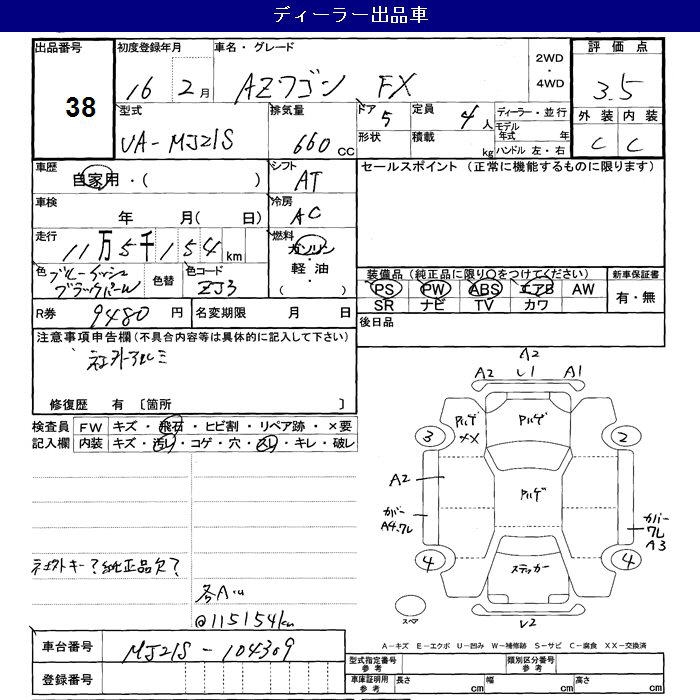 ディーラー出品車
出品番号 38
初度登録年月 16 2月
車名・グレード AZワゴン FX
2WD・4WD
評価点 3.5
型式 UA-MJ21S
排気量 660 CC
ドア 5
定員 4人
形状
積載 kg
ディーラー・並行
モデル年式 年
ハンドル 左・右
外装 C
内装 C
車歴 自家用・( )
シフト AT
セールスポイント (正常に機能するものに限ります)
車検 年 月( 日)
冷房 AC
走行 11万5千154km
燃料 ガソリン・軽油・( )
色 ブルーイッシュブラックパール 色替
色コード ZJ3
装備品(純正品に限り○をつけてください)
PS PW ABS エアB AW
SR ナビ TV カワ
新車保証書 有・無
R券 9480円
名変期限 月 日
後日品
注意事項申告欄(不具合内容等は具体的に記入して下さい)
社外アルミ
修復歴 有 〔箇所 〕
検査員記入欄
FW キズ・飛石・ヒビ割・リペア跡・×要
内装 キズ・汚レ・コゲ・穴・スレ・キレ・破レ
A2
A2 U1 A1
アルゲ XX
アルゲ
3
2
A2
アルゲ
カバー A4.ワレ
カバー ワレ A3
4
ステッカー
4
スペア
U2
純正品欠?
各A.u
@115154km
A-キズ E-エクボ U-凹み W-補修跡 S-サビ C-腐食 XX-交換済
車台番号 MJ21S-104309
登録番号
型式指定番号 参考
類別区分番号 参考
車庫証明用 参考 長さ cm 幅 cm 高さ cm